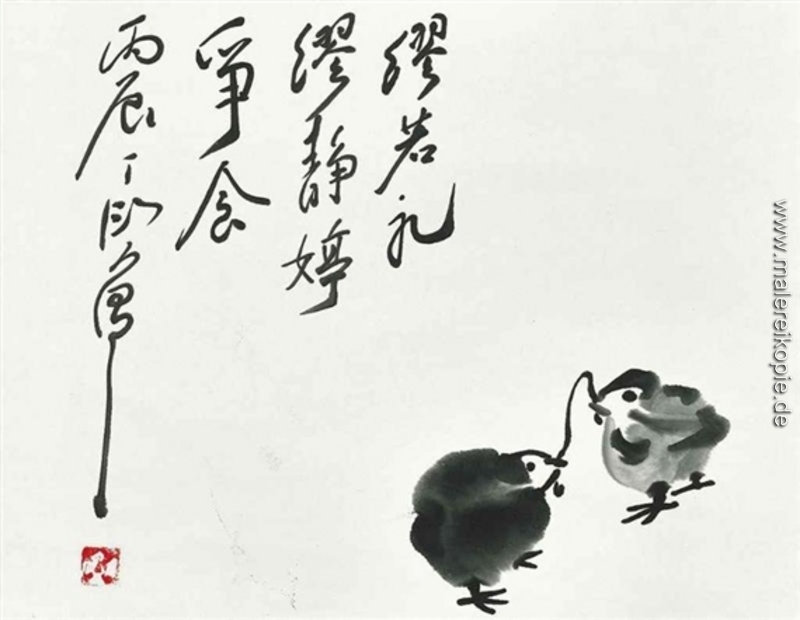 繆若礼
繆静婷
爭食
丙辰丁衍庸
www.malereikopie.de